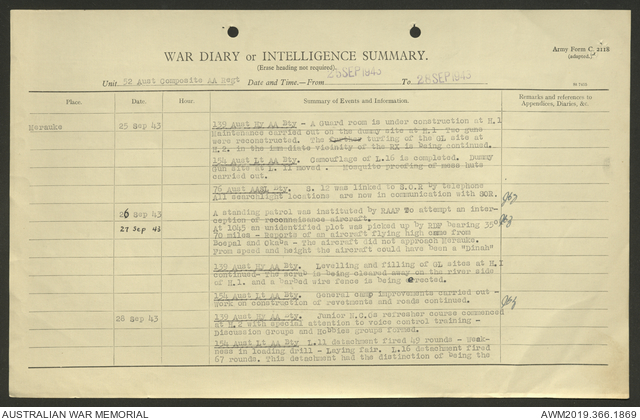 WAR DIARY or INTELLIGENCE SUMMARY.
(Erase heading not required).
Army Form C. 2118
(adapted.)
Unit 52 Aust Composite AA Regt Date and Time.—From 25 SEP 1943 To 28 SEP 1943
Place. Date. Hour. Summary of Events and Information. Remarks and references to
Appendices, Diaries, &c.
Merauke 25 Sep 43 139 Aust Hy AA Bty - A Guard room is under construction at H.1
Maintenance carried out on the dummy site at H.1 Two guns
were reconstructed. The turfing of the GL site at
H.2. in the immdiate vicinity of the RX is being continued.
154 Aust Lt AA Bty. Camouflage of L.16 is completed. Dummy
Gun site at L. 11 moved. Mosquito proofing of mess huts
carried out.
76 Aust AASL Bty. S. 12 was linked to S.O.R by telephone
All searchlight stations are now in communication with SOR.
26 Sep 43 A standing patrol was instituted by RAAF to attempt an inter-
ception of reconnaisance aircraft.
27 Sep 43 At 1045 an unidentified plot was picked up by RDF bearing 350
70 miles - Reports of an aircraft flying high came from
Boepel and Okaba - The aircraft did not approach Merauke.
From speed and height the aircraft could have been a "Dinah"
139 Aust Hy AA Bty. Levelling and filling of GL sites at H.1
continued- The scrub is being cleared away on the river side
of H.1. and a barbed wire fence is being erected.
154 Aust Lt AA Bty. General camp improvements carried out -
work on construction of revetments and roads continued.
28 Sep 43 139 Aust Hy AA Bty. Junior N.C.Os refresher course commenced
at H.2 with special attention to voice control training -
Discussion Groups and Hobbies groups formed.
154 Aust Lt AA Bty. L.11 detachment fired 49 rounds - Weak-
ness in loading drill - Laying fair. L.16 detachment fired
67 rounds. This detachment had the distinction of being the
AUSTRALIAN WAR MEMORIAL
AWM2019.366.1869